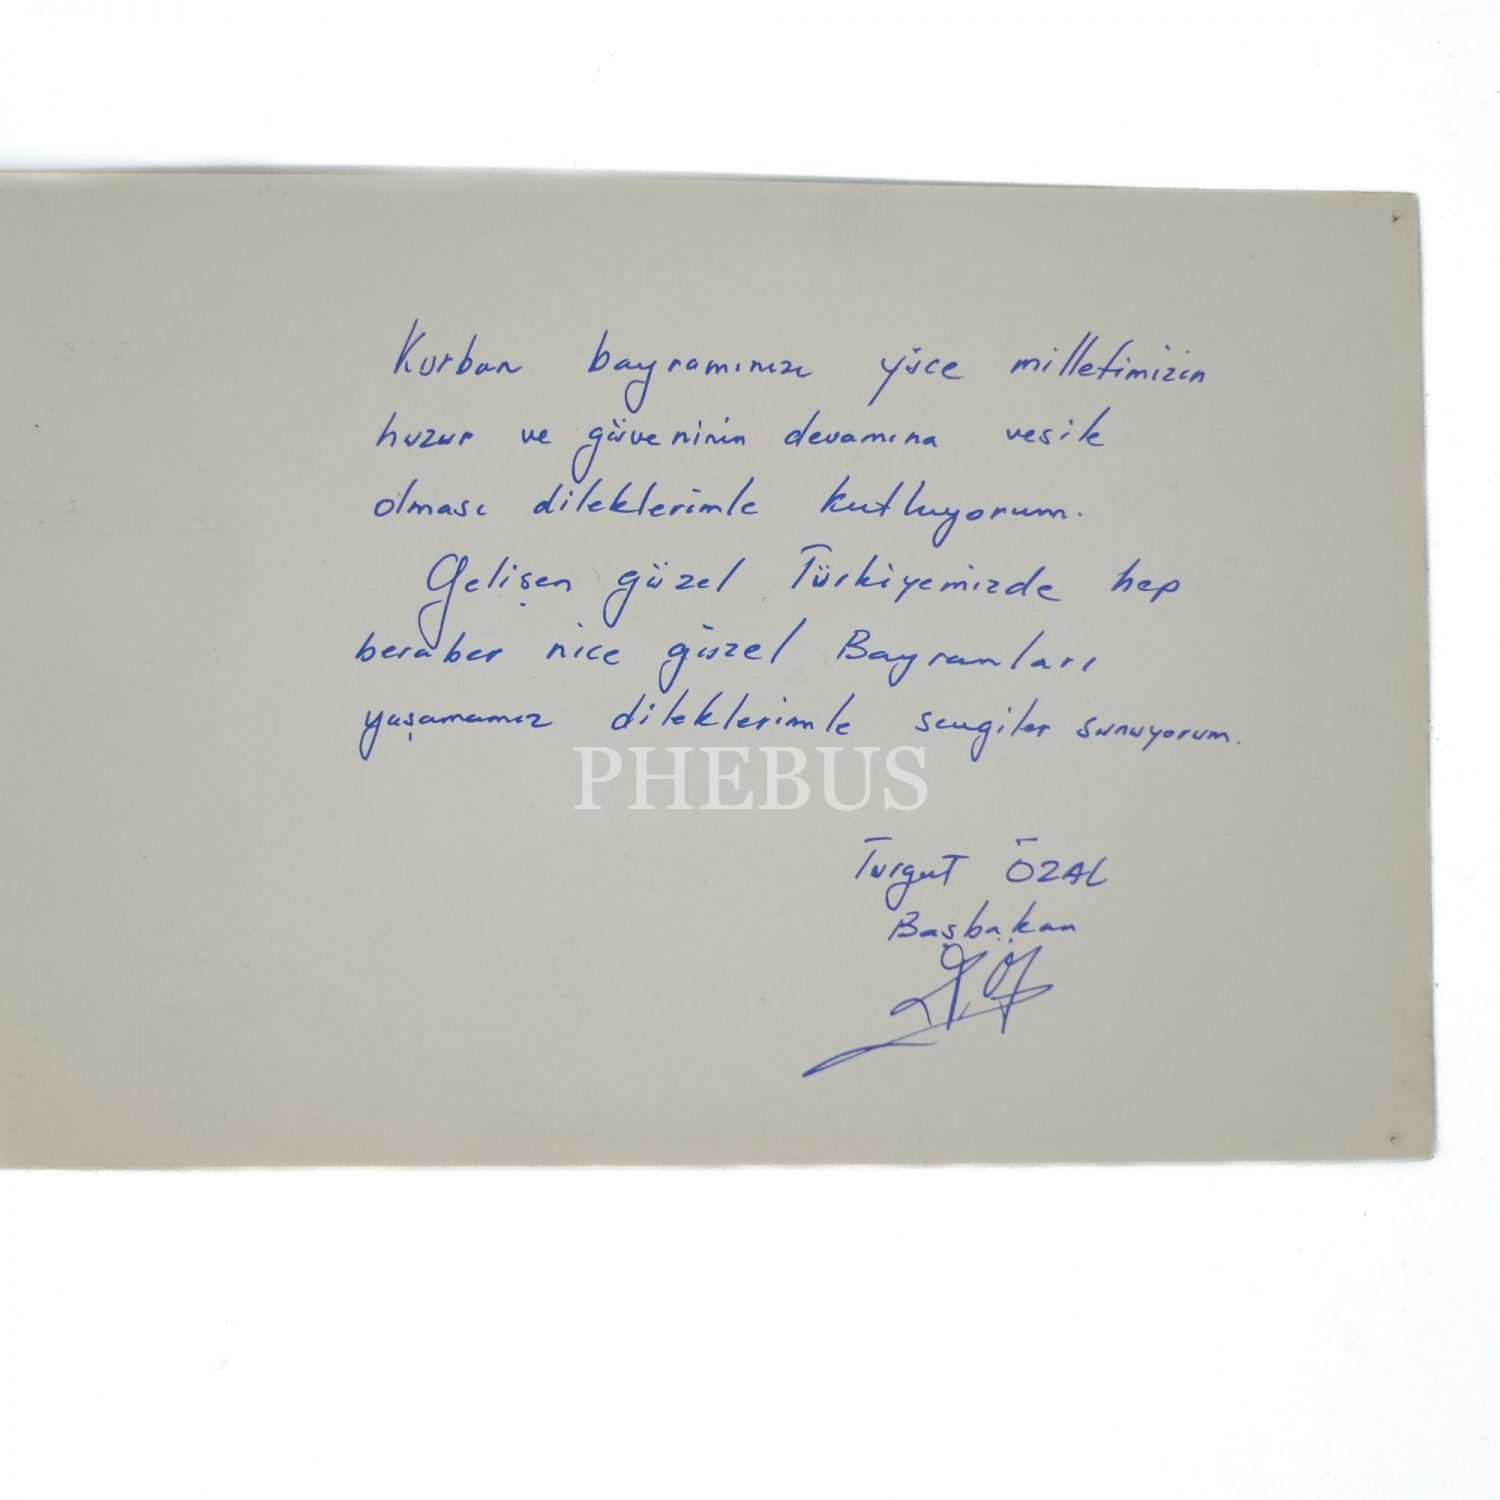 Kurban bayramınızı yüce milletimizin
huzur ve güveninin devamına vesile
olması dileklerimle kutluyorum.
Gelişen güzel Türkiyemizde hep
beraber nice güzel Bayramları
yaşamamız dileklerimle sevgiler sunuyorum.
PHEBUS
Turgut ÖZAL
Başbakan